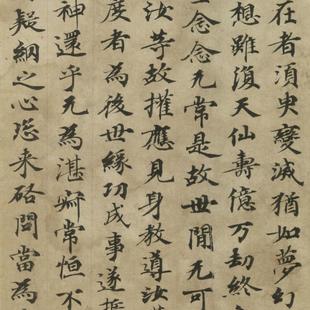 在者須臾變滅猶如夢幻
想雖復天仙壽億万劫終
念念无常是故世間无可
汝等故權應見身教導汝
度者為後世緣功成事遂
神還乎无為湛然常恒不
疑網之心恣来問當為